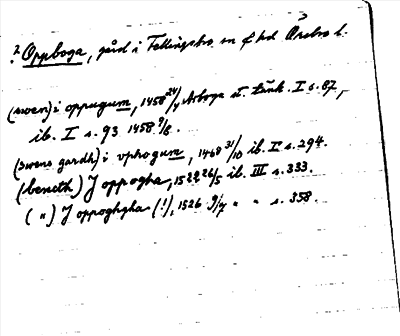 ? Oppboga, gård i Fellingsbro sn o hd Örebro l.
(swen) i oppugum, 1458 24/4 Arboga st. tänk. I s. 87,
ib. I s. 93 1458 9/8.
(swens gardh) i vphogum, 1468 31/10 ib. I s. 294.
(beneth) J oppogha, 1522 26/5 ib. III s. 333.
( " ) J oppoghgha (!), 1526 9/7 " " s. 358.